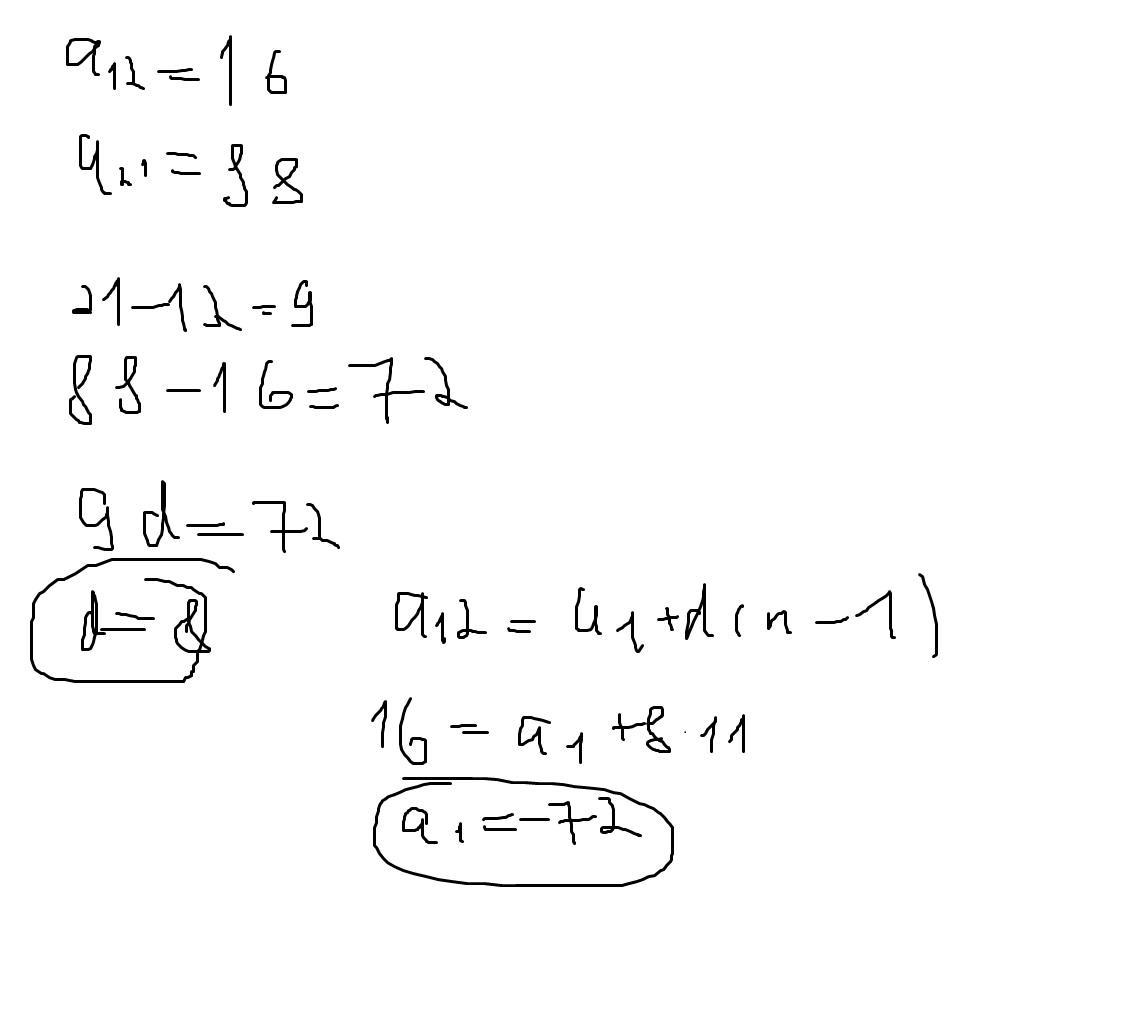 a₁₂ = 16
a₂₁ = 88
21 - 12 = 9
88 - 16 = 72
9d = 72
d = 8
a₁₂ = a₁ + d(n - 1)
16 = a₁ + 8·11
a₁ = -72